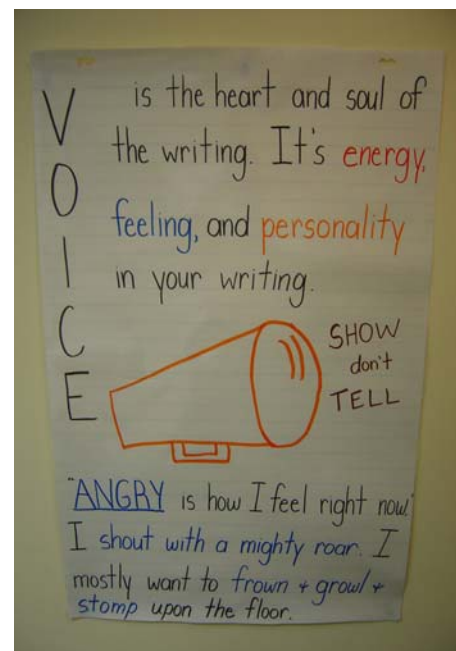 VOICE
is the heart and soul of
the writing. It's energy,
feeling, and personality
in your writing.
SHOW
don't
TELL
"ANGRY is how I feel right now."
I shout with a mighty roar. I
mostly want to frown + growl +
stomp upon the floor.